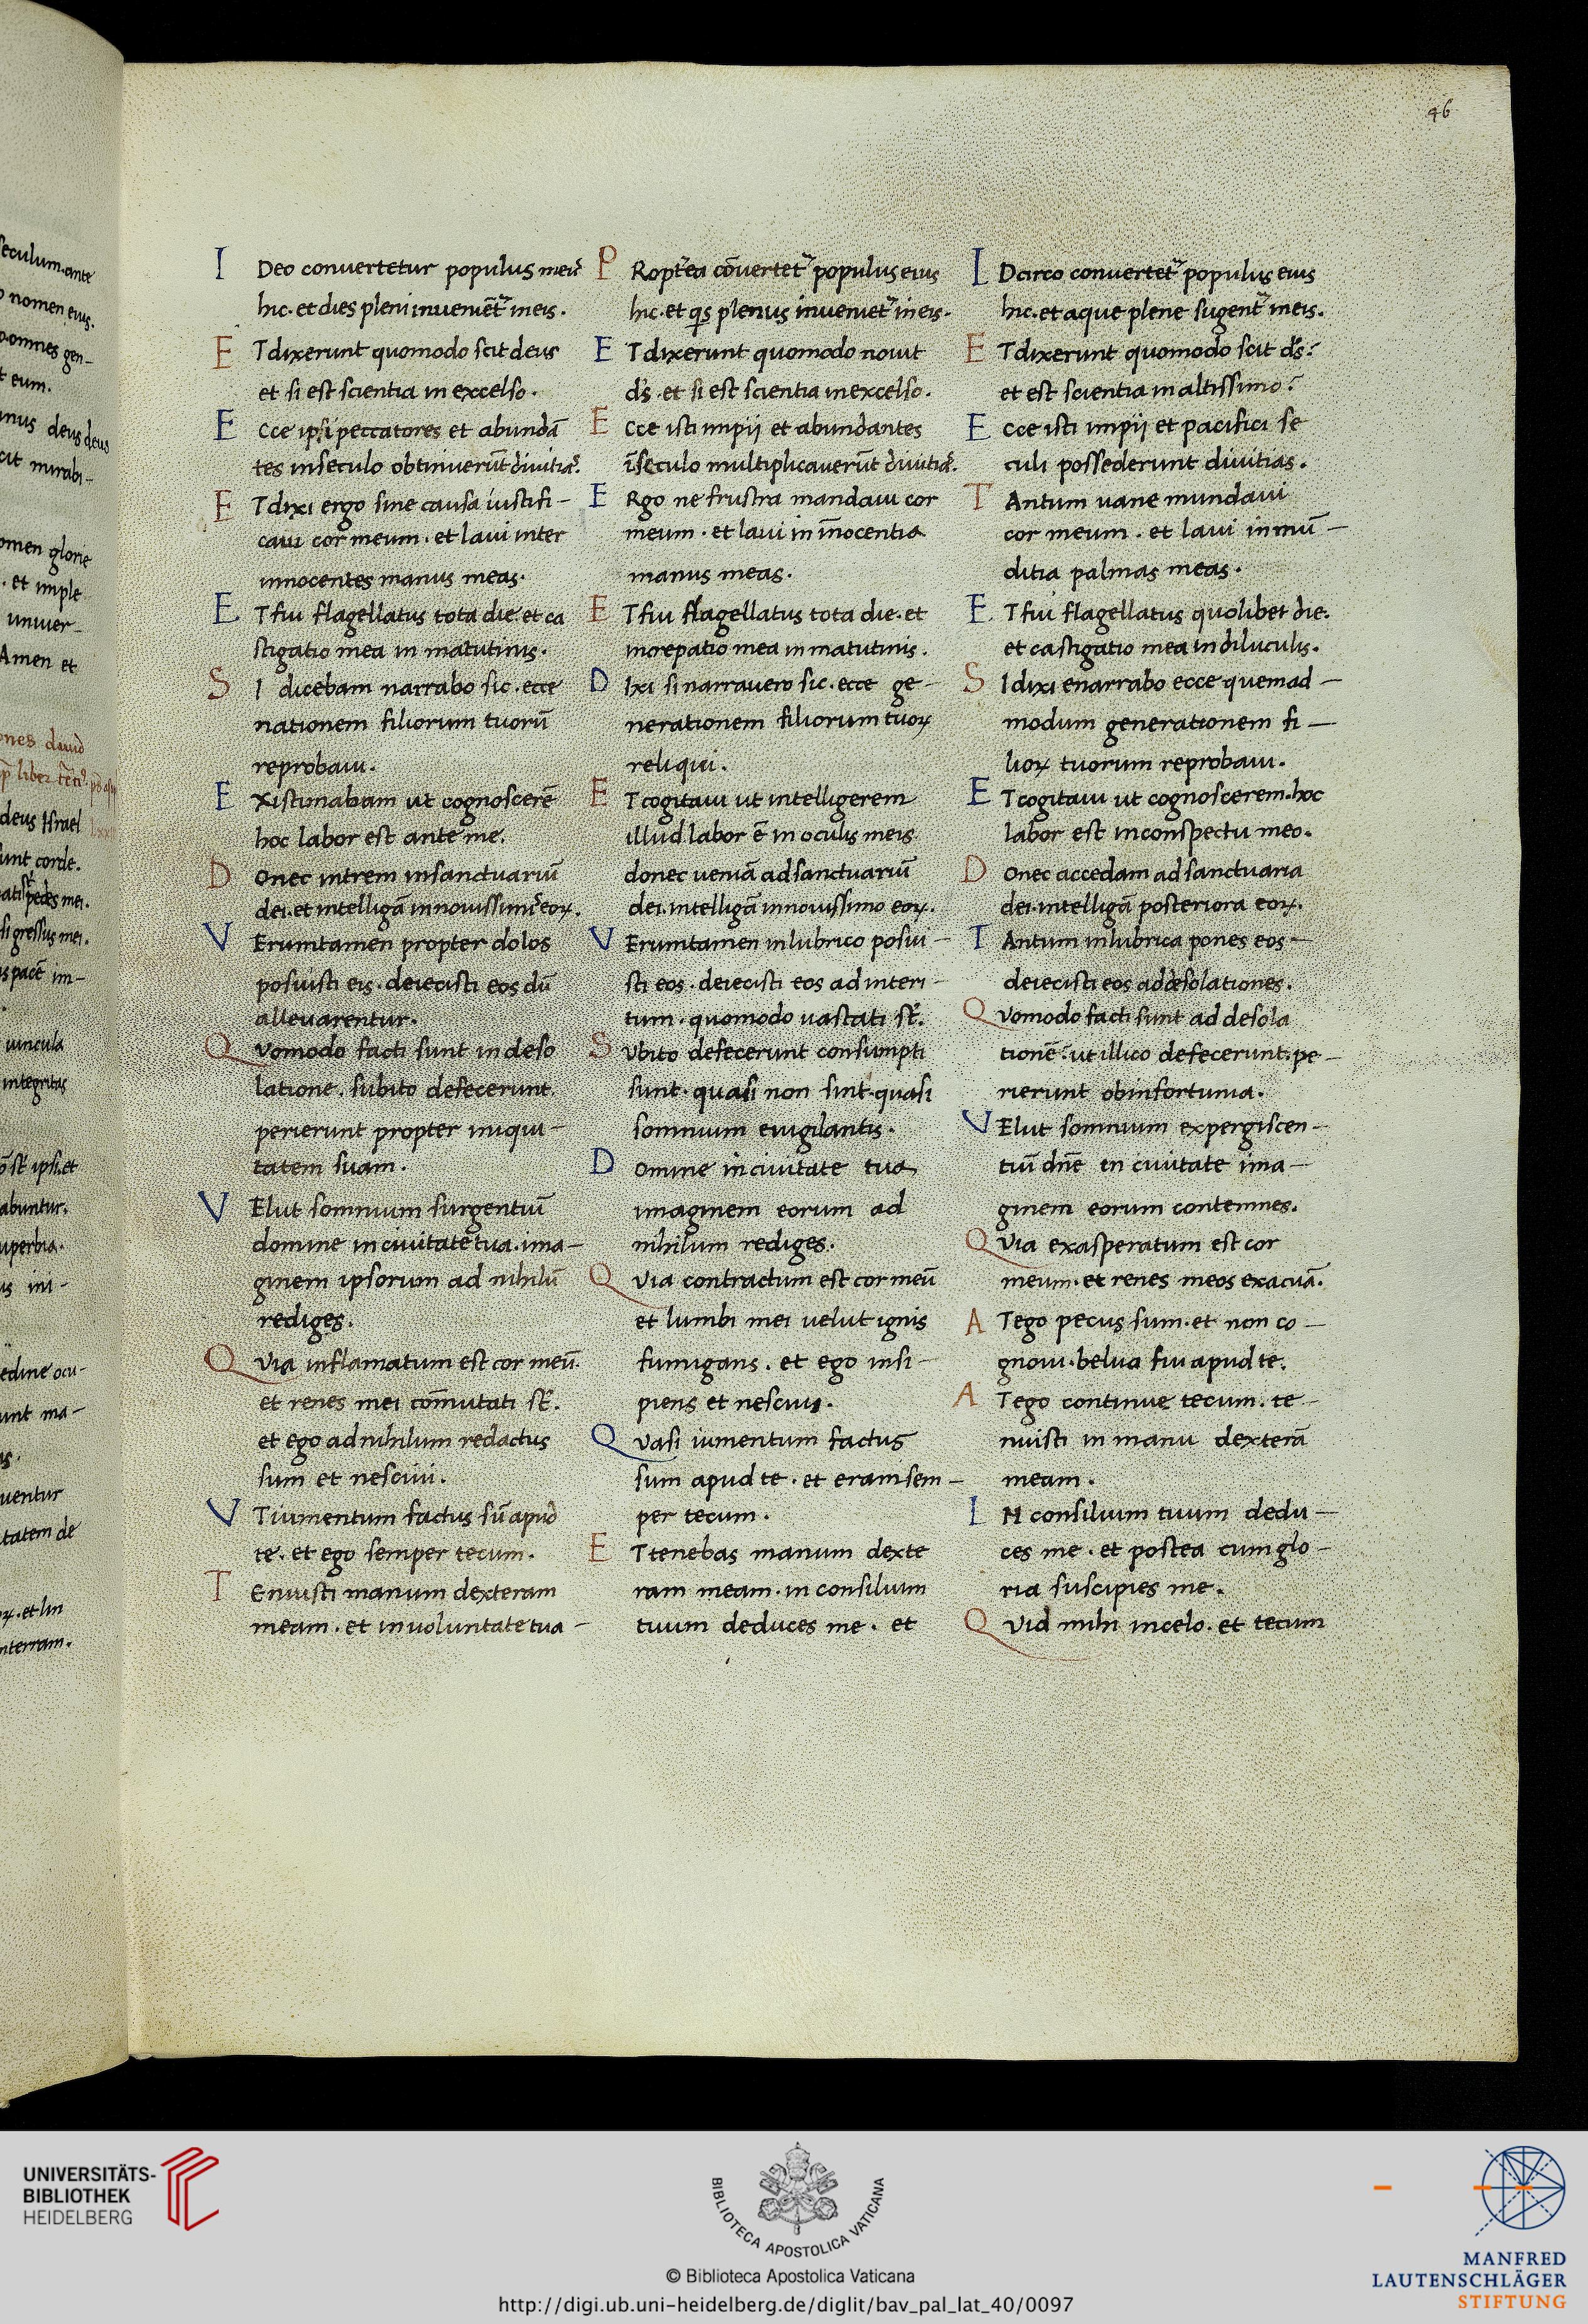 46
I Deo conuertetur populus meus̉
hic. et dies pleni inuenient᷑ in eis.
E T dixerunt quomodo scit deus
et si est scientia in excelso.
E cce ipsi peccatores et abundā
tes in seculo obtinuerūt diuitias.
E T dixi ergo sine causa iustifi–
caui cor meum. et laui inter
innocentes manus meas.
E T fui flagellatus tota die. et ca
stigatio mea in matutinis.
S I dicebam narrabo sic. ecce
nationem filiorum tuorū
reprobaui.
E Xistimabam ut cognoscerē
hoc labor est ante me.
D onec intrem in sanctuariū
dei. et intelligā in nouissimis eoꝝ.
V Erumtamen propter dolos
posuisti eis. deiecisti eos dū
alleuarentur.
Q vomodo facti sunt in deso
latione. subito defecerunt.
perierunt propter iniqui–
tatem suam.
V Elut somnium surgentiū
domine in ciuitate tua. ima–
ginem ipsorum ad nihilū
rediges.
Q via inflamatum est cor meū.
et renes mei cōmutati sť.
et ego ad nihilum redactus
sum et nesciui.
V T iumentum factus sū apud
te. et ego semper tecum.
T Enuisti manum dexteram
meam. et in uoluntate tua –
P Ropt̄ea cōuertet᷑ populus eius
hic. et qis plenus inueniet᷑ in eis.
E T dixerunt quomodo nouit
ds. et si est scientia in excelso.
E cce isti impij et abundantes
ī seculo multiplicauerūt diuitias.
E Rgo ne frustra mandaui cor
meum. et laui in īnocentia
manus meas.
E T fui flagellatus tota die. et
increpatio mea in matutinis.
D Ixi si narrauero sic. ecce ge–
nerationem filiorum tuoꝝ
reliqui.
E T cogitaui ut intelligerem
illud labor ē in oculis meis
donec ueniā ad sanctuariū
dei. intelligā in nouissimo eoꝝ.
V Erumtamen in lubrico posui–
sti eos. deiecisti eos ad interi–
tum. quomodo uastati sť.
S vbito defecerunt consumpti
sunt. quasi non sint. quasi
somnium euigilantis.
D omine in ciuitate tua
imaginem eorum ad
nihilum rediges.
Q via contractum est cor meū
et lumbi mei uelut ignis
fumigans. et ego insi–
piens et nesciui.
Q vasi iumentum factus
sum apud te. et eram sem–
per tecum.
E T tenebas manum dexte
ram meam. in consilium
tuum deduces me. et
I Dcirco conuertet᷑ populus eius
hic. et aque plene sugent᷑ in eis.
E T dixerunt quomodo scit ds?
et est scientia in altissimo?
E cce isti impij et pacifici se
culi possederunt diuitias.
T Antum uane mundaui
cor meum. et laui in mū–
ditia palmas meas.
E T fui flagellatus quolibet die.
et castigatio mea in diluculis.
S I dixi enarrabo ecce quemad–
modum generationem fi–
lioꝝ tuorum reprobaui.
E T cogitaui ut cognoscerem. hoc
labor est in conspectu meo.
D onec accedam ad sanctuaria
dei. intelligā posteriora eoꝝ.
T Antum in lubrica pones eos –
deiecisti eos ad desolationes.
Q vomodo facti sunt ad desola
tionē: ut illico defecerunt. pe–
rierunt ob infortunia.
V Elut somnium expergiscen–
tiū dn̄e in ciuitate ima–
ginem eorum contemnes.
Q via exasperatum est cor
meum. et renes meos exacuā.
A T ego pecus sum. et non co–
gnoui. belua fui apud te.
A T ego continue tecum. te–
nuisti in manu dexterā
meam.
I N consilium tuum dedu–
ces me. et postea cum glo–
ria suscipies me.
Q vid mihi in celo. et tecum
UNIVERSITÄTS-
BIBLIOTHEK
HEIDELBERG
BIBLIOTECA APOSTOLICA VATICANA
© Biblioteca Apostolica Vaticana
http://digi.ub.uni-heidelberg.de/diglit/bav_pal_lat_40/0097
MANFRED
LAUTENSCHLÄGER
STIFTUNG